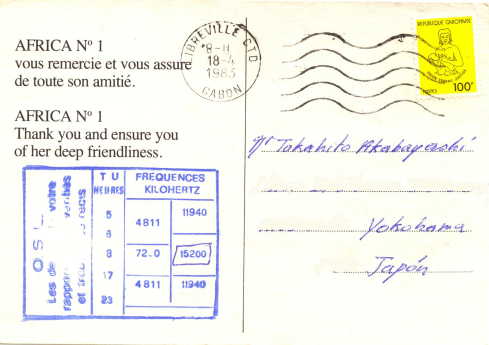 AFRICA Nº 1
vous remercie et vous assure
de toute son amitié.
AFRICA Nº 1
Thank you and ensure you
of her deep friendliness.
LIBREVILLE CTD
18-4
1983
GABON
REPUBLIQUE GABONAISE
POSTES
100F
Takahito Akabayashi
Yokohama
Japón
Q S L
votre
rapport
et
T U
HEURES
FREQUENCES
KILOHERTZ
5
6
8
17
23
4811
11940
72.0
15200
4811
11940